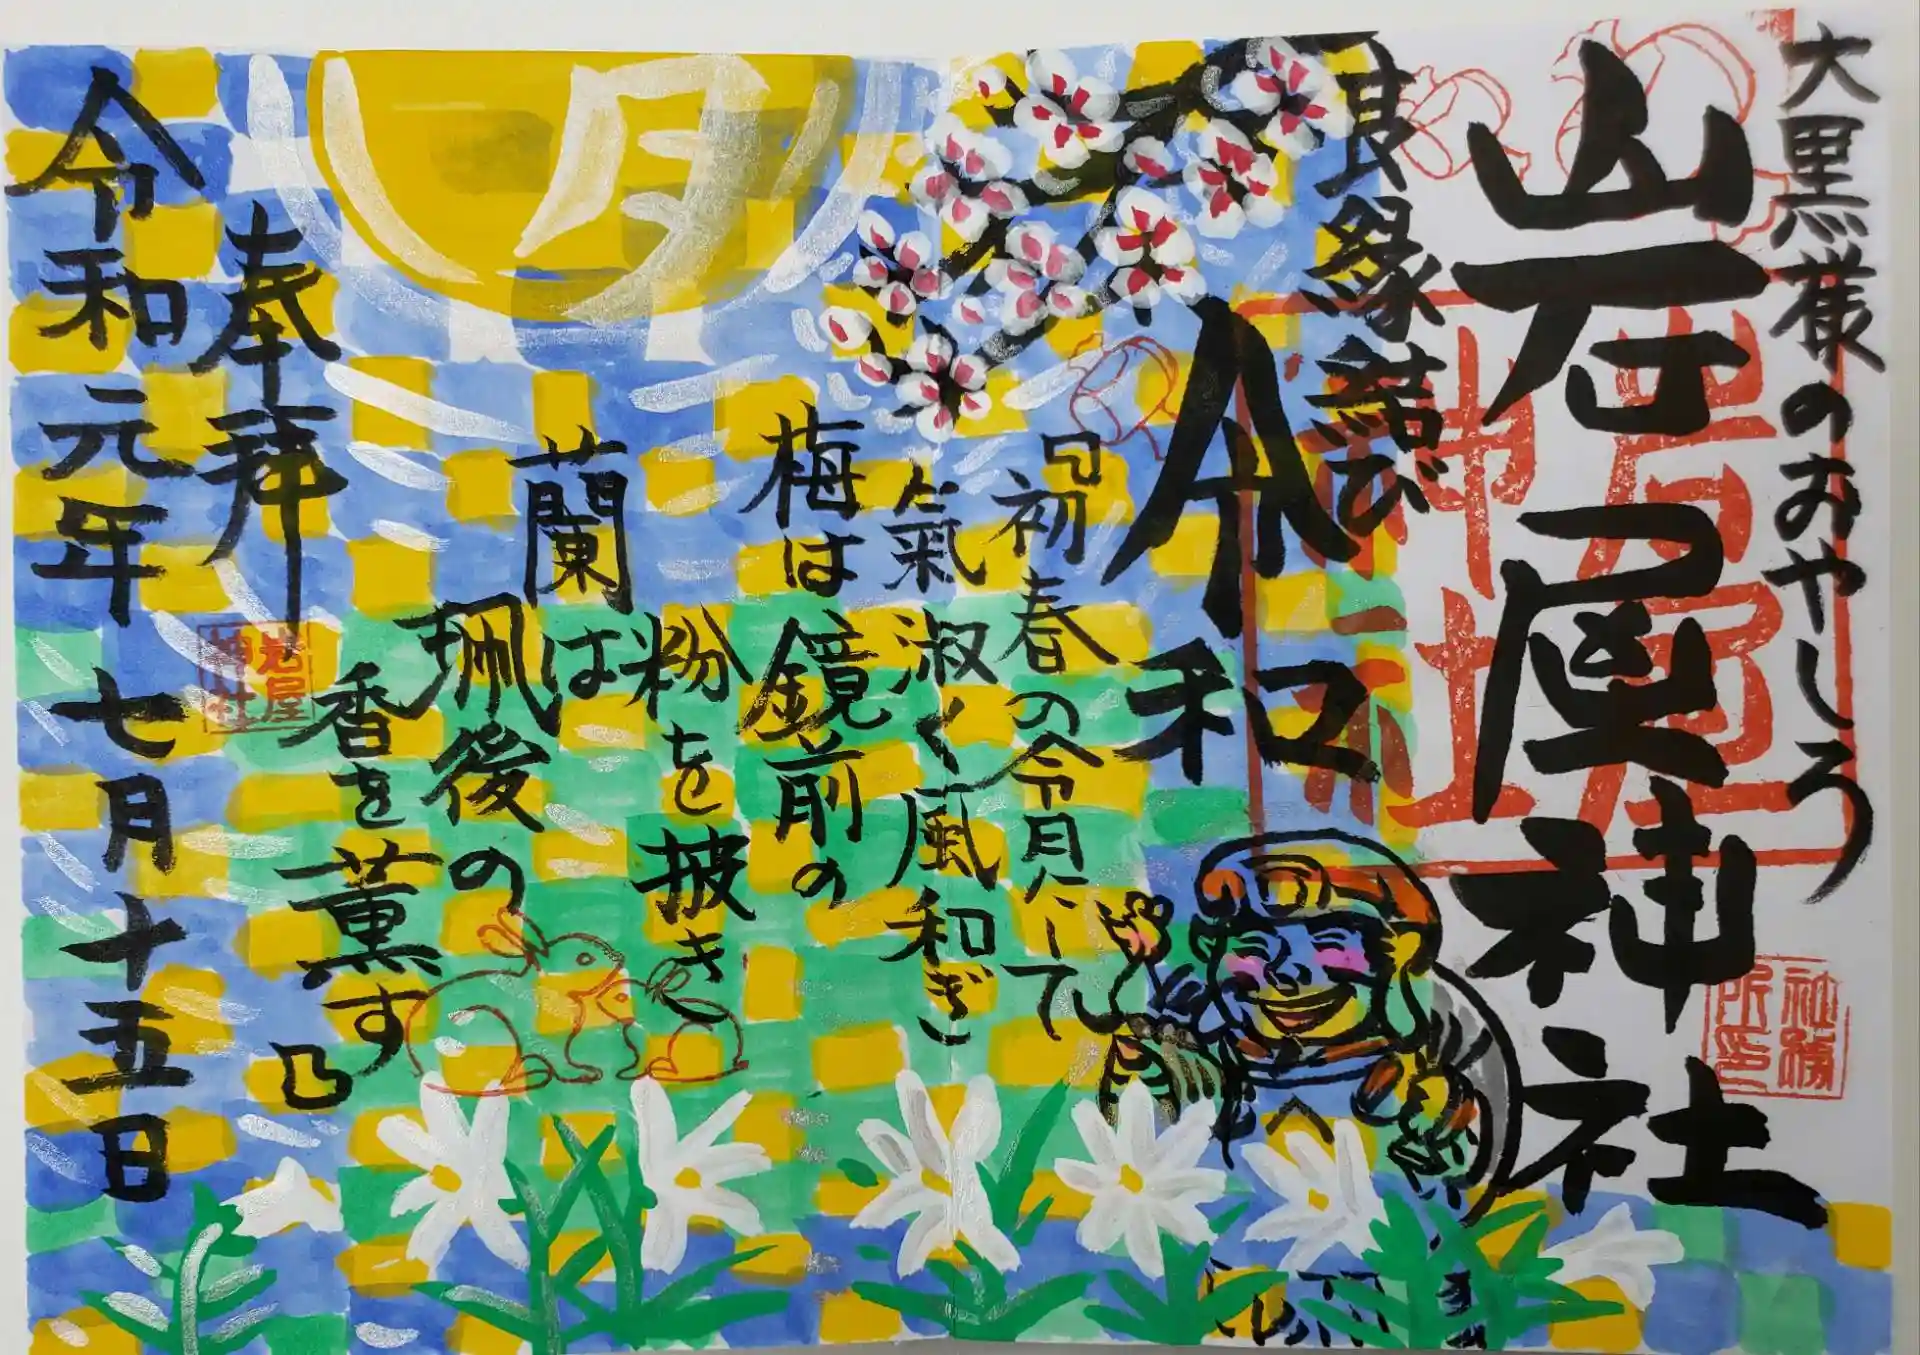 大黒様のおやしろ
岩屋神社
岩屋神社
社務所印
良縁結び
令和
『初春の令月にして
氣淑く風和ぎ
梅は鏡前の
粉を披き
蘭は
珮後の
香を薫す』
月
奉拝
岩屋神社
令和元年七月十五日